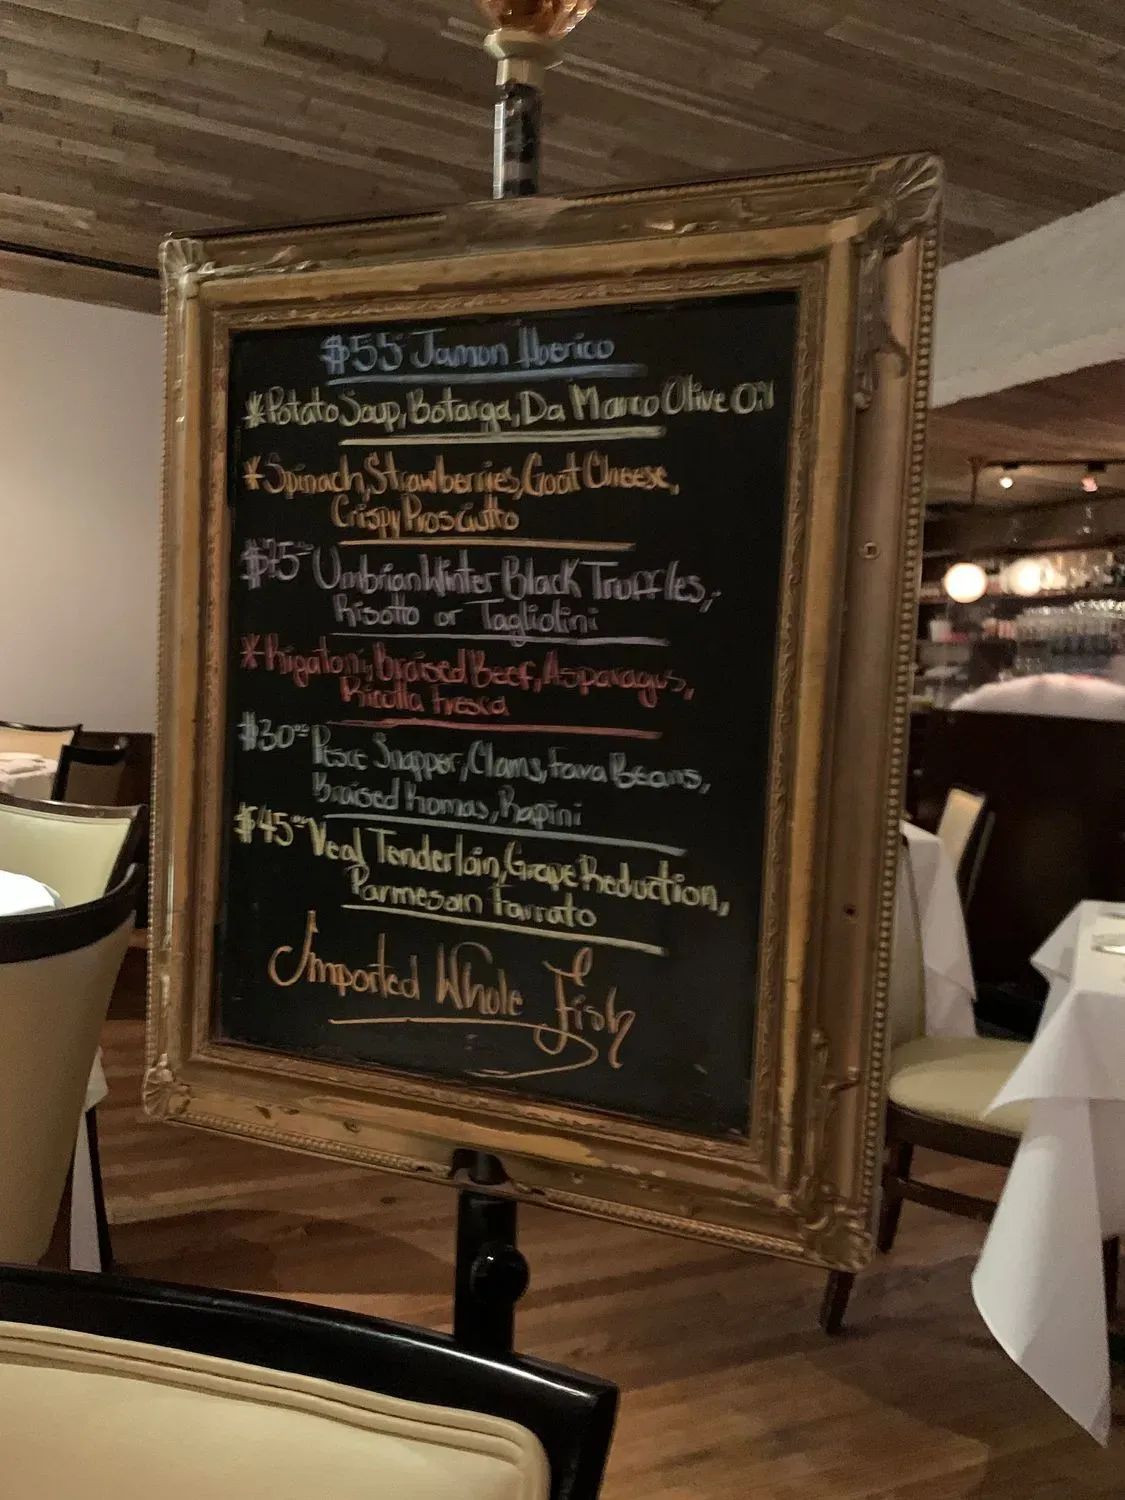 $55 Jamon Iberico
*Potato Soup, Botarga, Da Marco Olive Oil
*Spinach, Strawberries, Goat Cheese,
Crispy Prosciutto
$75 Umbrian Winter Black Truffles,
Risotto or Tagliolini
*Rigatoni, Braised Beef, Asparagus,
Ricotta Fresca
$30 Pesce Snapper, Clams, Fava Beans,
Braised Romas, Rapini
$45 Veal Tenderloin, Grape Reduction,
Parmesan Farrato
Imported Whole Fish